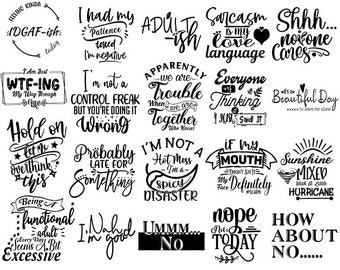 FEELING KINDA
IDGAF-ish
today
I had my
Patience
tested
I'm negative
ADULT
ish
Sarcasm
is my
love
language
Shhh...
no one
Cares
I Am Just
WTF-ING
My Way Through
Life
I'm not a
CONTROL FREAK
BUT YOU'RE DOING IT
Wrong
APPARENTLY
we are
Trouble
WHEN WE ARE
together
Who Knew!
Everyone
was
Thinking
it
I JUST Said It
It's a
Beautiful Day
to leave me alone
Hold on
let me
overthink
this
Probably
LATE FOR
Something
I'M NOT A
Hot Mess
I'm a
spicy
DISASTER
if my
MOUTH
Doesn't Say It
My
Face Definitely
Will
Sunshine
MIXED
With A Little
HURRICANE
Being A
functional
adult
Every Day
Seems A Bit
Excessive
I Nah
I'm good
Ummm...
No
nope
Not
TODAY
HOW
ABOUT
NO......